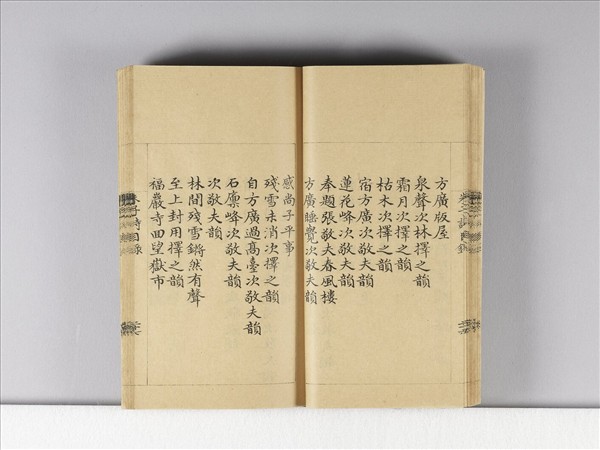 方廣版屋
泉聲次林擇之韻
霜月次擇之韻
枯木次擇之韻
宿方廣次敬夫韻
蓮花峰次敬夫韻
奉題張敬夫春風樓
方廣睡覺次敬夫韻
感尚子平事
殘雪未消次擇之韻
自方廣過高臺次敬夫韻
石廩峰次敬夫韻
次敬夫韻
林間殘雪鏘然有聲
至上封用擇之韻
福嚴寺回望嶽市